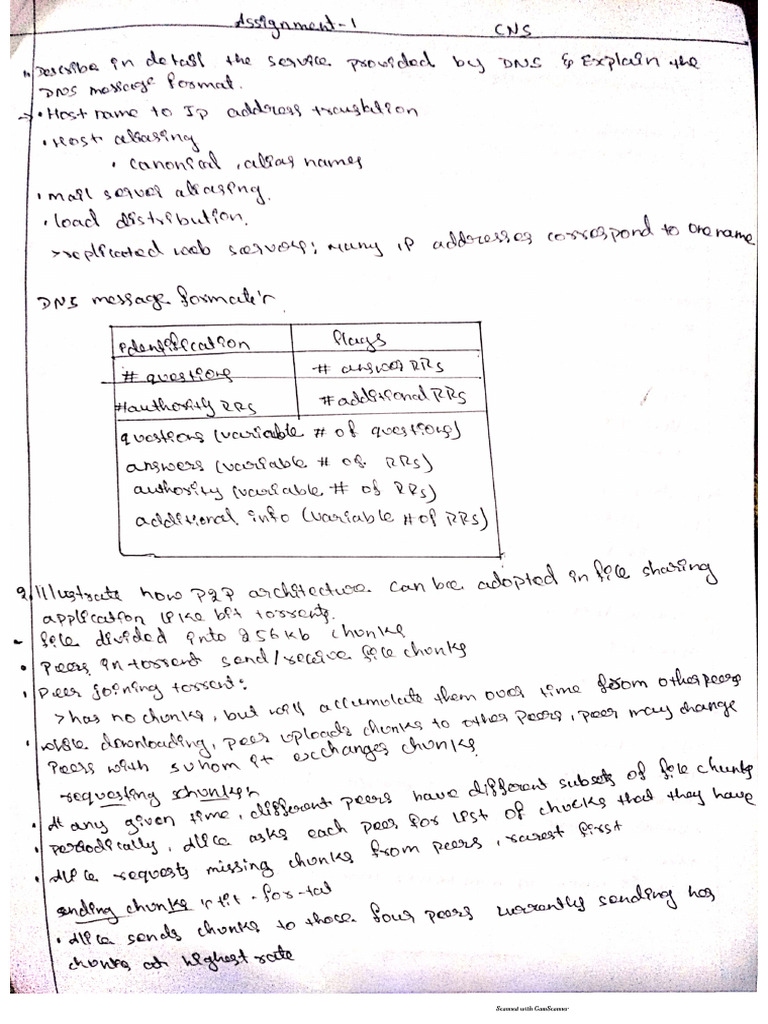 Assignment-1
CNS
1. Describe in detail the service provided by DNS & Explain the
DNS message format.
→ • Host name to Ip address translation
• Host aliasing
• canonical, alias names
• mail server aliasing.
• load distribution.
> replicated web servers: many IP addresses correspond to one name
DNS message format:
Identification | flags
# questions | # answer RRs
# authority RRs | # additional RRs
questions (variable # of questions)
answers (variable # of RRs)
authority (variable # of RRs)
additional info (variable # of RRs)
2. Illustrate how P2P architecture can be adopted in file sharing
application like bit torrents.
- file divided into 256kb chunks
• Peers in torrent send/receive file chunks
• Peer joining torrent:
> has no chunks, but will accumulate them over time from other peers
• while downloading, peer uploads chunks to other peers, peer may change
Peers with suhom it exchanges chunks.
requesting chunks:
• At any given time, different peers have different subsets of file chunks
• periodically, Alice asks each peer for list of chucks that they have
• Alice requests missing chunks from peers, rarest first
sending chunks: tit-for-tat
• Alice sends chunks to those four peers currently sending has
chunks at highest rate
Scanned with CamScanner